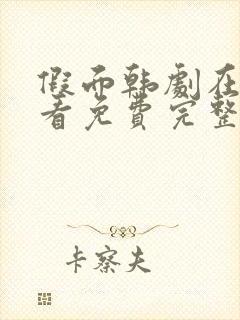 假面韩剧在
看免费完整
卡察夫